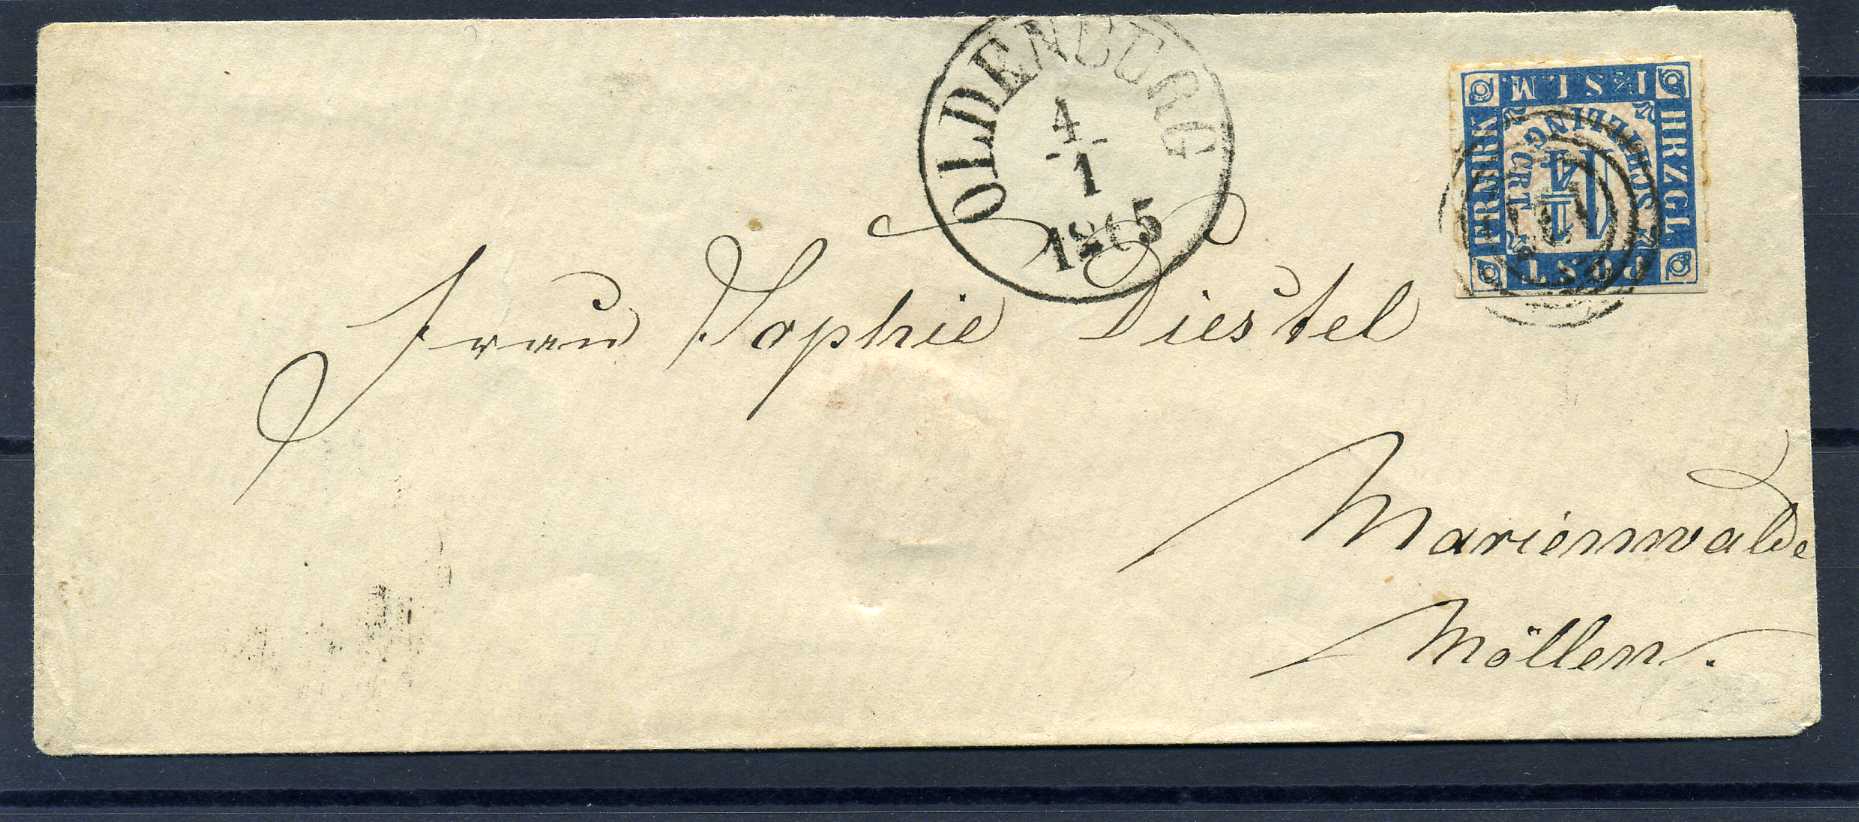 OLDENBURG
4
1
1865
HRZGL.
POST
FRMRK
1⅓ S L M
1¼
SCHILLING CRT.
Frau Sophie Diestel
Marienwalde
Möllen.